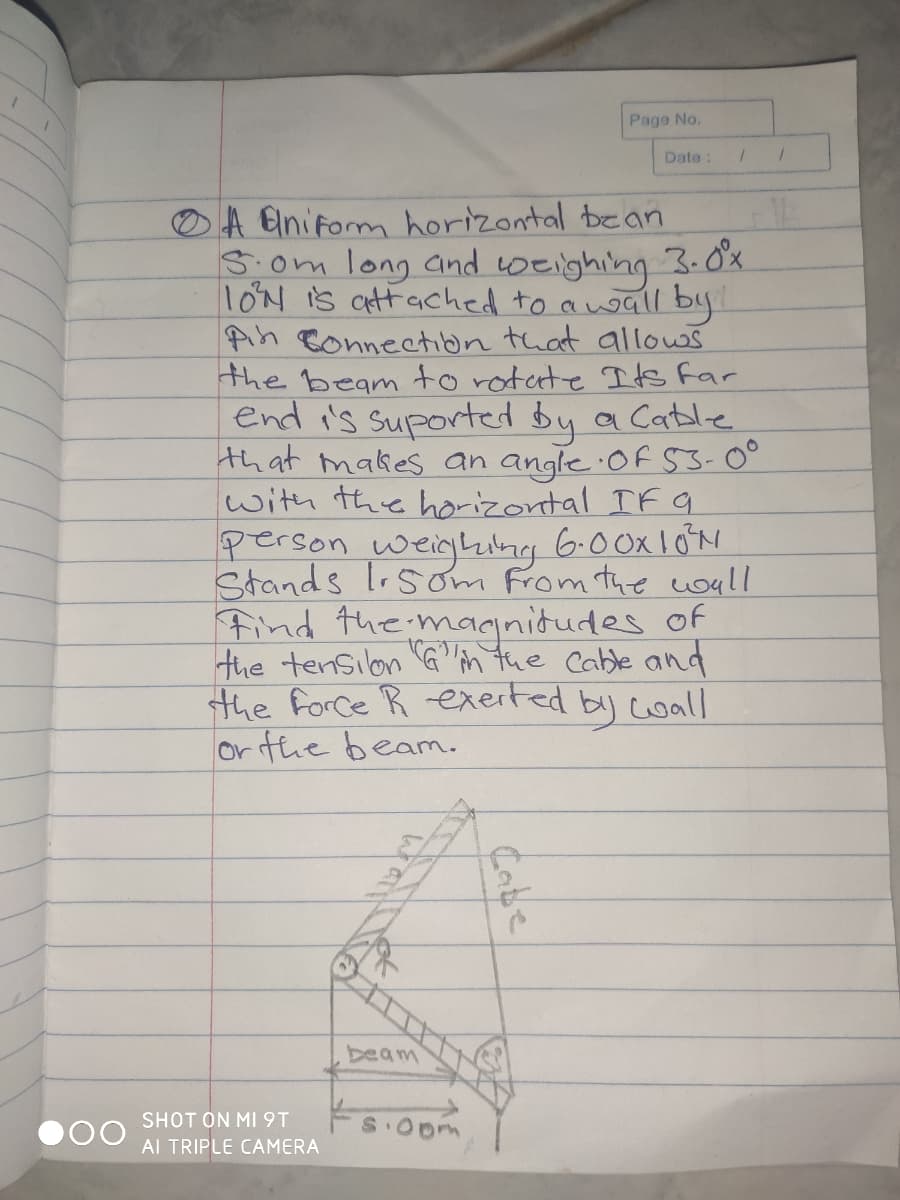 Page No.
Date : / /
② A Uniform horizontal bean
5.0m long and weighing 3.0⁰x
10²N is attached to a wall by
Pin Connection that allows
the beam to rotate Its far
end i's suported by a Cable
that makes an angle.OF 53.0⁰
with the horizontal IF a
person weighing 6.00x10²N
Stands 1.50m From the wall
Find the magnitudes of
the tension "G" in the Cable and
the force R exerted by wall
or the beam.
wall
Cabe
beam
5.00m
SHOT ON MI 9T
AI TRIPLE CAMERA